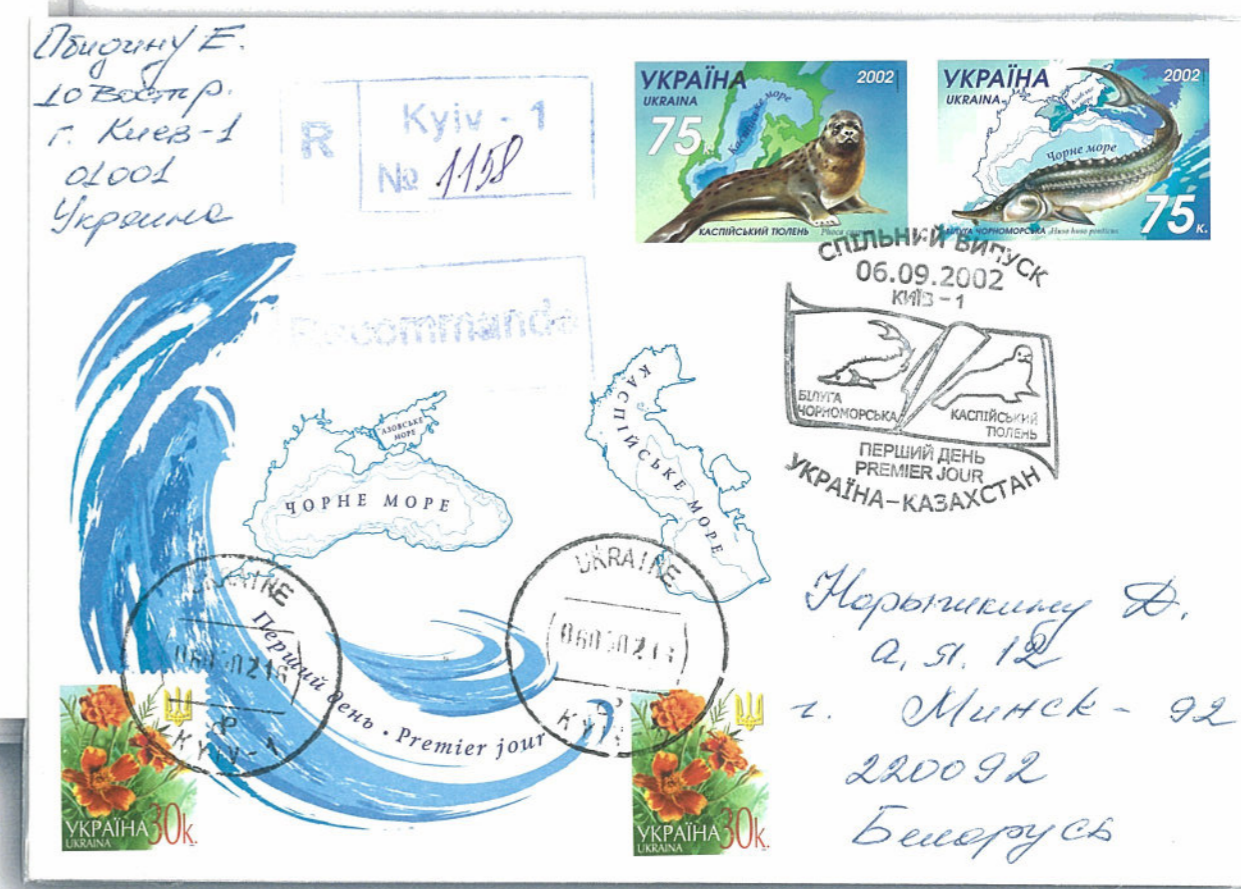 Е.
10 Востр.
г. Киев-1
01001
Украина
R
Kyiv - 1
№ 1158
Recommandé
УКРАЇНА 2002
UKRAINA
75
Каспійське море
КАСПІЙСЬКИЙ ТЮЛЕНЬ Phoca caspica
УКРАЇНА 2002
UKRAINA
Азовське море
Чорне море
75 к.
БІЛУГА ЧОРНОМОРСЬКА Huso huso ponticus
СПІЛЬНИЙ ВИПУСК
06.09.2002
КИЇВ - 1
БІЛУГА
ЧОРНОМОРСЬКА
КАСПІЙСЬКИЙ
ТЮЛЕНЬ
ПЕРШИЙ ДЕНЬ
PREMIER JOUR
УКРАЇНА-КАЗАХСТАН
АЗОВСЬКЕ
МОРЕ
ЧОРНЕ МОРЕ
КАСПІЙСЬКЕ МОРЕ
UKRAINE
KYIV-1
UKRAINE
Перший день • Premier jour
УКРАЇНА 30к.
UKRAINA
УКРАЇНА 30к.
UKRAINA
Д.
а. я. 12
г. Минск - 92
220092
Беларусь